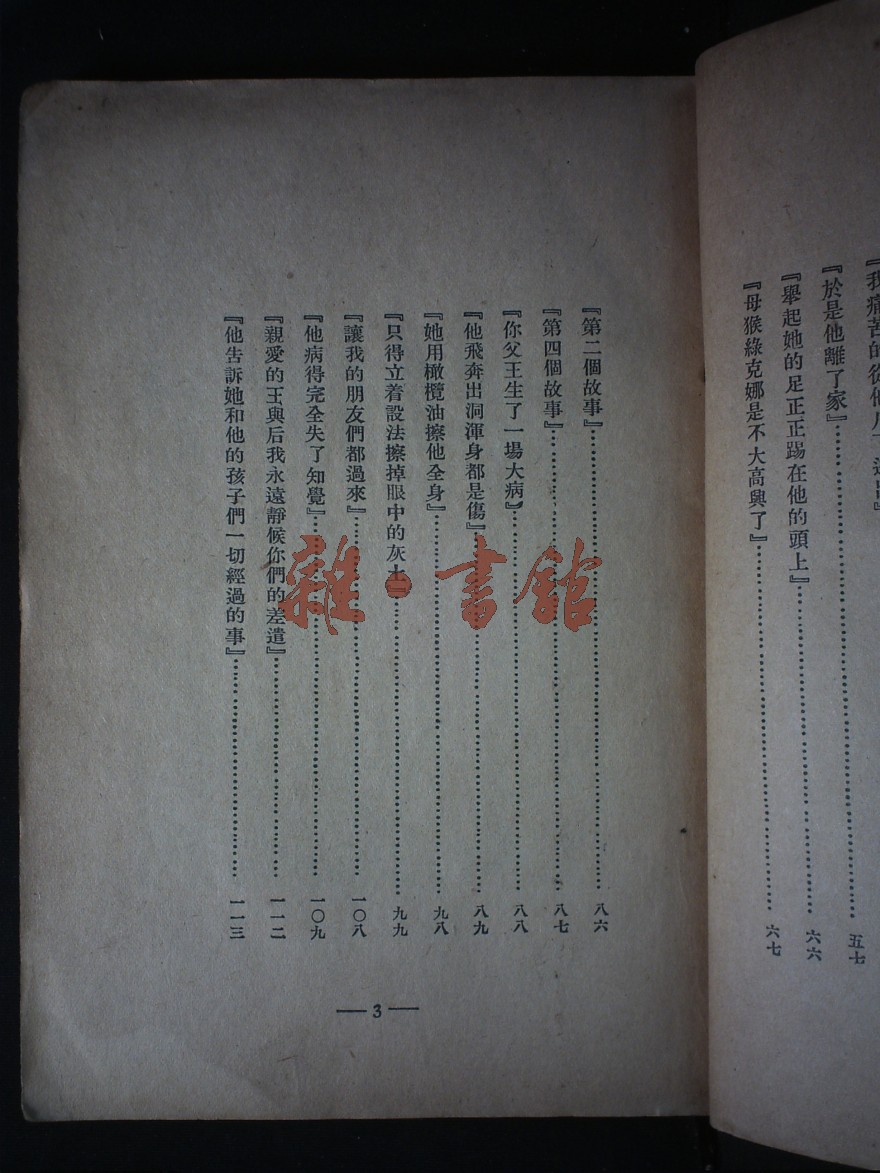 於是他離了家』⋯⋯五七
『舉起她的足正正踢在他的頭上』⋯⋯六六
『母猴綠克娜是不大高興了』⋯⋯六七
『第二個故事』⋯⋯八六
『第四個故事』⋯⋯八七
『你父王生了一場大病』⋯⋯八八
『他飛奔出洞渾身都是傷』⋯⋯八九
『她用橄欖油擦他全身』⋯⋯九八
『只得立着設法擦掉眼中的灰土』⋯⋯九九
『讓我的朋友們都過來』⋯⋯一〇八
『他病得完全失了知覺』⋯⋯一〇九
『親愛的王與后我永遠靜候你們的差遣』⋯⋯一一二
『他告訴她和他的孩子們一切經過的事』⋯⋯一一三
— 3 —
雜·書館